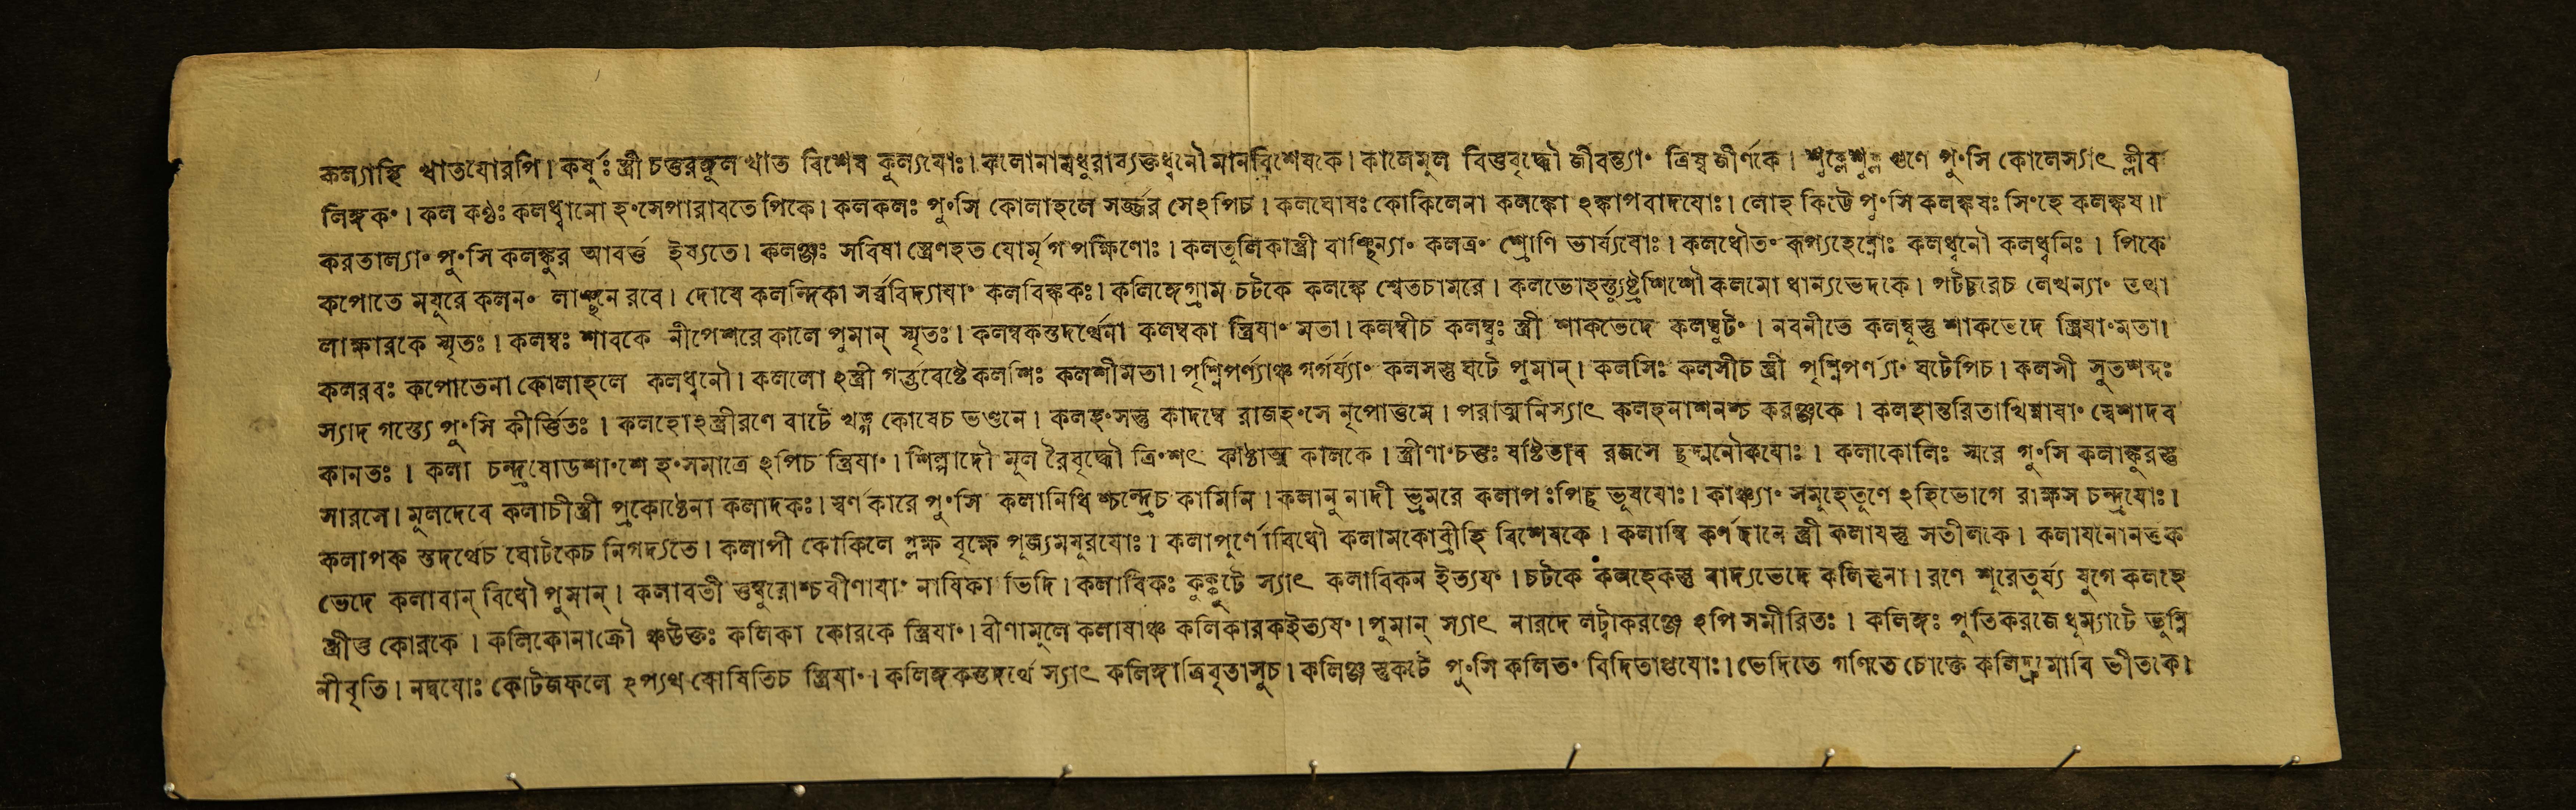 কল্যাস্থি খাতযোরপি। কর্ষুঃ স্ত্রী চতুরঙ্গুল খাত বিশেষ কুল্যযোঃ। কলোনামধুরাব্যক্তধ্বনৌ মানবিশেষকে। কালেমূল বিত্তবৃদ্ধৌ জীবন্ত্যাং ত্রিষ্বজীর্ণকে। শুক্লেশুক্ল গুণে পুংসি কোলেস্যাৎ ক্লীব
লিঙ্গকং। কল কণ্ঠঃ কলধ্বানো হংসেপারাবতে পিকে। কলকলঃ পুংসি কোলাহলে সর্জ্জর সেঽপিচ। কলঘোষঃ কোকিলেনা কলঙ্কো ঽঙ্কাপবাদযোঃ। লোহ কিট্টে পুংসি কলঙ্কষঃ সিংহে কলঙ্কষ॥
করতাল্যাং পুংসি কলঙ্কুর আবর্ত্ত ইষ্যতে। কলঞ্জঃ সবিষা স্ত্রেণহত যোর্মৃগ পক্ষিণোঃ। কলতূলিকাস্ত্রী বাঞ্ছিন্যাং কলত্রং শ্রোণি ভার্য্যযোঃ। কলধৌতং রূপ্যহেম্নোঃ কলধ্বনৌ কলধ্বনিঃ। পিকে
কপোতে ময়ূরে কলনং লাঞ্ছন রবে। দোষে কলন্দিকা সর্ব্ববিদ্যাযাং কলবিঙ্ককঃ। কলিঙ্গেগ্রাম চটকে কলঙ্কে শ্বেতচামরে। কলভোহস্ত্যুষ্ট্রশিশৌ কলমো ধান্যভেদকে। পটচ্চরেচ লেখন্যাং তথা
লাক্ষারকে স্মৃতঃ। কলম্বঃ শাবকে নীপেশরে কালে পুমান্ স্মৃতঃ। কলম্বকস্তদর্থেনা কলম্বকা স্ত্রিযাং মতা। কলম্বীচ কলম্বুঃ স্ত্রী শাকভেদে কলম্বুটং। নবনীতে কলম্বূস্তু শাকভেদে স্ত্রিযাংমতা।
কলরবঃ কপোতেনা কোলাহলে কলধ্বনৌ। কললো ঽস্ত্রী গর্ভবেষ্টে কলশিঃ কলশীমতা। পৃশ্নিপর্ণ্যাঞ্চ গর্গর্য্যাং কলসস্তু ঘটে পুমান্। কলসিঃ কলসীচ স্ত্রী পৃশ্নিপর্ণ্যাং ঘটেপিচ। কলসী সুতশব্দঃ
স্যাদ গস্ত্যে পুংসি কীর্ত্তিতঃ। কলহোঽস্ত্রীরণে বাটে খড়্গ কোষেচ ভণ্ডনে। কলহংসস্তু কাদম্বে রাজহংসে নৃপোত্তমে। পরাত্মনিস্যাৎ কলহনাশনশ্চ করঞ্জকে। কলহান্তরিতাখিন্নাযাং দ্বেশাদব
কানতঃ। কলা চন্দ্রষোডশাংশে হংসমাত্রে ঽপিচ স্ত্রিযাং। শিল্পাদৌ মূল রৈবৃদ্ধৌ ত্রিংশৎ কাষ্ঠাত্ম কালকে। স্ত্রীণাংচতুঃ ষষ্টিভাব রজসে ছদ্মনৌকযোঃ। কলাকোলিঃ স্মরে পুংসি কলাঙ্কুরস্তু
সারসে। মূলদেবে কলাচীস্ত্রী প্রকোষ্ঠেনা কলাদকঃ। স্বর্ণ কারে পুংসি কলানিধি শ্চন্দ্রেচ কামিনি। কলানু নাদী ভ্রমরে কলাপঃপিচ্ছ ভূষযোঃ। কাঞ্চ্যাং সমূহেতূণে ঽহিভোগে রাক্ষস চন্দ্রযোঃ।
কলাপক স্তদর্থেচ ঘোটকেচ নিগদ্যতে। কলাপী কোকিলে প্লক্ষ বৃক্ষে পূজ্যময়ূরযোঃ। কলাপূর্ণোবিধৌ কলামকোব্রীহি বিশেষকে। কলাম্বি কর্ণদানে স্ত্রী কলাযস্তু সতীলকে। কলাযনোনর্ত্তক
ভেদে কলাবান্ বিধৌ পুমান্। কলাবতী তুম্বুরোশ্চবীণাযাং নাযিকা ভিদি। কলাবিকঃ কুক্কুটে স্যাৎ কলাবিকন ইত্যযং। চটকে কলহেকস্তু বাদ্যভেদে কলিস্তুনা। রণে শূরেতুর্য্য যুগে কলহে
স্ত্রীতু কোরকে। কলিকোনাক্রৌ ঞ্চউক্তঃ কলিকা কোরকে স্ত্রিযাং। বীণামূলে কলাযাঞ্চ কলিকারকইত্যযং। পুমান্ স্যাৎ নারদে লট্বাকরঞ্জে ঽপি সমীরিতঃ। কলিঙ্গঃ পূতিকরজে ধূম্যাটে ভূম্নি
নীবৃতি। নদ্বযোঃ কোটজফলে ঽপ্যথ যোষিতিচ স্ত্রিযাং। কলিঙ্গকস্তদর্থে স্যাৎ কলিঙ্গাত্রিবৃতাসুচ। কলিঞ্জ স্তুকটে পুংসি কলিতং বিদিতাপ্তযোঃ। ভেদিতে গণিতে চোক্তে কলিদ্রুমোবি ভীতকে।